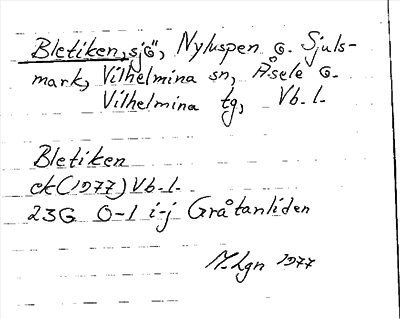 Bletiken, sjö, Nyluspen o. Sjuls-
mark, Vilhelmina sn, Åsele o.
Vilhelmina tg, Vb. l.
Bletiken
ek (1977) Vb. l.
23G 0-1 i-j Gråtanliden
M. Lgn 1977